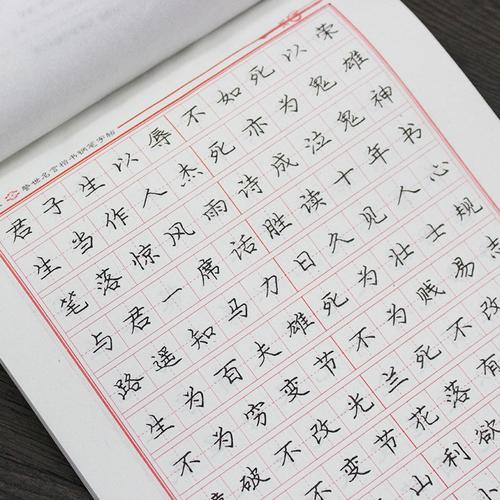 警世名言楷书钢笔字帖
君子生以辱不如死以荣
生当作人杰死亦为鬼雄
笔落惊风雨诗成泣鬼神
与君一席话胜读十年书
路遥知马力日久见人心
生为百夫雄死为壮士规
不为穷变节不为贱易志
破不改光兰死不改
不变节花落有
山利欲